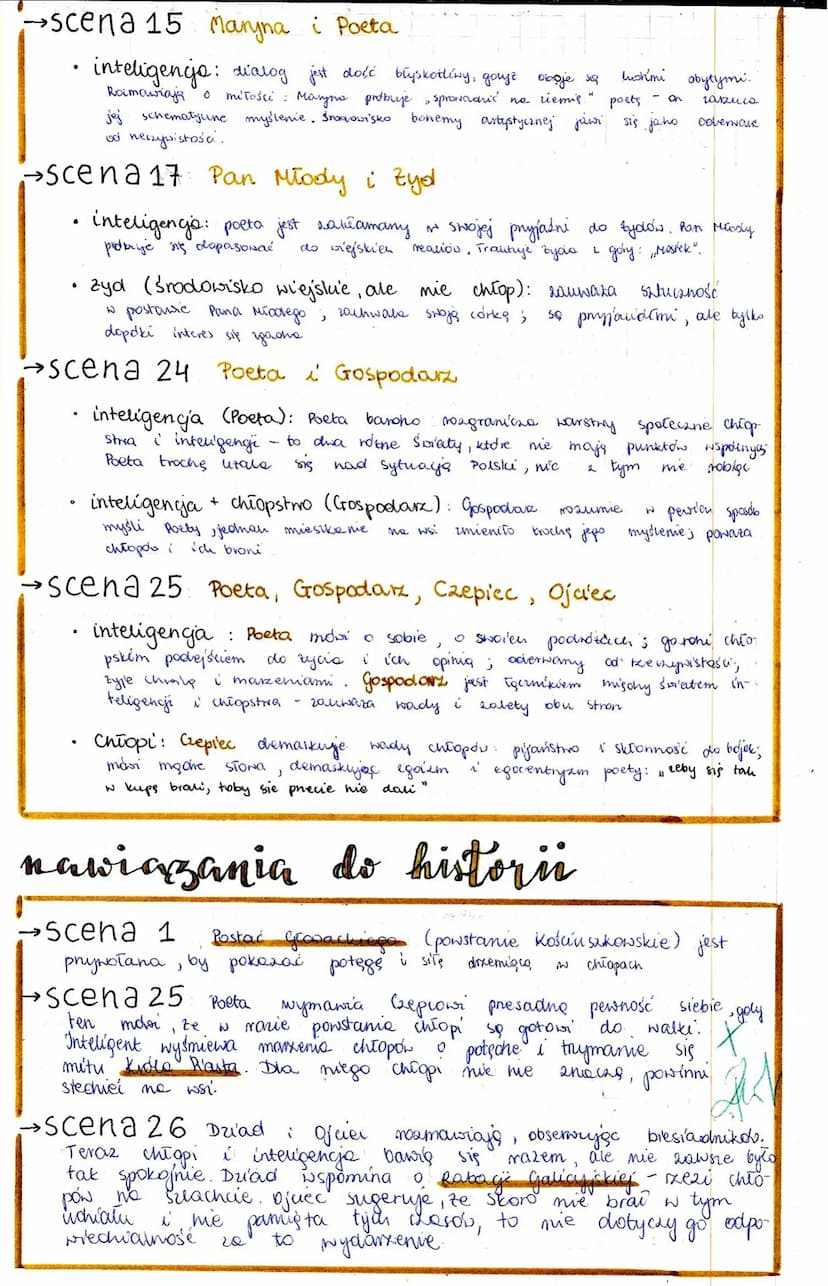 →scena 15 Maryna i Poeta
• inteligencja: dialog jest dość błyskotliwy, gdyż oboje są ludźmi obytymi.
Rozmawiają o miłości: Maryna próbuje „sprowadzić na ziemię" poetę – on zarzuca
jej schematyczne myślenie. Środowisko bohemy artystycznej jawi się jako oderwane
od rzeczywistości.
→scena 17 Pan Młody i Żyd
• inteligencja: poeta jest zakłamany w swojej przyjaźni do żydów. Pan Młody
próbuje się dopasować do wiejskich realiów. Traktuje żyda z góry: „Mosiek".
• żyd (środowisko wiejskie, ale nie chłop): zauważa sztuczność
w postawie Pana Młodego; zachwala swoją córkę; są przyjaciółmi, ale tylko
dopóki interes się zgadza
→scena 24 Poeta i Gospodarz
• inteligencja (Poeta): Poeta bardzo rozgranicza warstwy społeczne chłop-
stwa i inteligencji – to dwa różne światy, które nie mają punktów wspólnych;
Poeta trochę użala się nad sytuacją Polski, nic z tym nie robiąc
• inteligencja + chłopstwo (Gospodarz): Gospodarz rozumie w pewien sposób
myśli Poety, jednak mieszkanie na wsi zmieniło trochę jego myślenie; poważa
chłopów i ich broni
→scena 25 Poeta, Gospodarz, Czepiec, Ojciec
• inteligencja: Poeta mówi o sobie, o swoich podróżach; gardzi chło-
pskim podejściem do życia i ich opinią; oderwany od rzeczywistości,
żyje chwilą i marzeniami. Gospodarz jest łącznikiem między światem in-
teligencji i chłopstwa – zauważa wady i zalety obu stron
• Chłopi: Czepiec demaskuje wady chłopów: pijaństwo i skłonność do bójek;
mówi mądre słowa, demaskując egoizm i egocentryzm poety: „żeby się tak
w kupę brali, toby sie przecie nie dali"
nawiązania do historii
→scena 1 Postać Głowackiego (powstanie Kościuszkowskie) jest
przywołana, by pokazać potęgę i siłę drzemiącą w chłopach
→scena 25 Poeta wymawia Czepcowi przesadną pewność siebie, gdy
ten mówi, że w razie powstania chłopi są gotowi do walki.
Inteligent wyśmiewa marzenia chłopów o potędze i trzymanie się
mitu Króla Piasta. Dla niego chłopi nic nie znaczą, powinni
siedzieć na wsi.
→scena 26 Dziad i Ojciec rozmawiają, obserwując biesiadników.
Teraz chłopi i inteligencja bawią się razem, ale nie zawsze było
tak spokojnie. Dziad wspomina o Rabacji Galicyjskiej – rzezi chło-
pów na szlachcie. Ojciec sugeruje, że skoro nie brał w tym
udziału i nie pamięta tych czasów, to nie dotyczy go odpo-
wiedzialność za to wydarzenie.